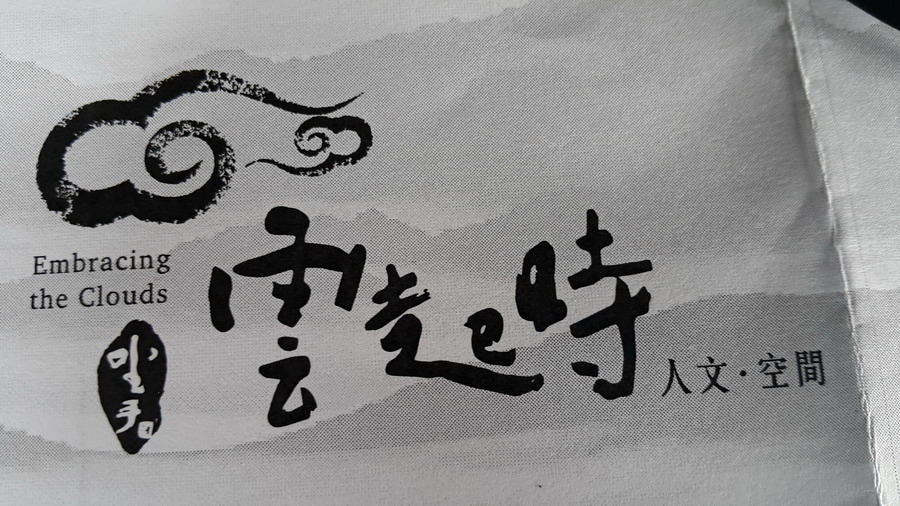 Embracing
the Clouds
雲起時
人文·空間